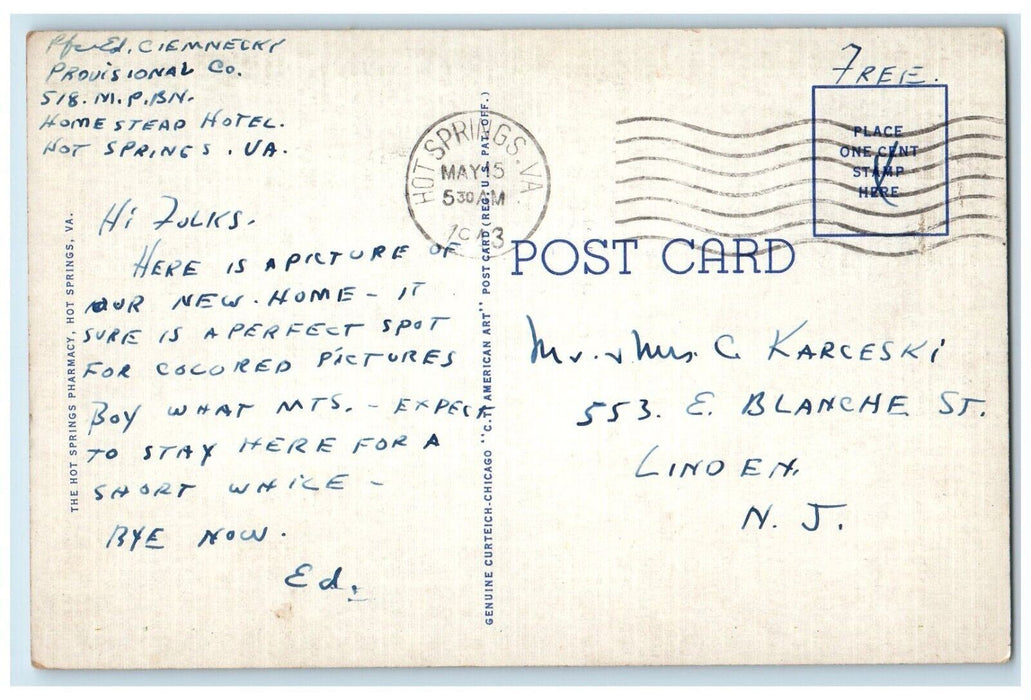 Pfc Ed. CIEMNECKI
PROVISIONAL CO.
518. M.P. BN.
HOMESTEAD HOTEL.
HOT SPRINGS. VA.
FREE.
PLACE
ONE CENT
STAMP
HERE
HOT SPRINGS. VA.
MAY 15
5 30 AM
1943
Hi FOLKS.
HERE IS A PICTURE OF
OUR NEW. HOME - IT
SURE IS A PERFECT SPOT
FOR COLORED PICTURES
BOY WHAT MTS. - EXPECT
TO STAY HERE FOR A
SHORT WHILE -
BYE NOW.
Ed.
THE HOT SPRINGS PHARMACY, HOT SPRINGS, VA.
GENUINE CURTEICH-CHICAGO "C.T. AMERICAN ART" POST CARD (REG. U.S. PAT. OFF.)
POST CARD
Mr. & Mrs. C KARCESKI
553. E. BLANCHE ST.
LINDEN.
N. J.